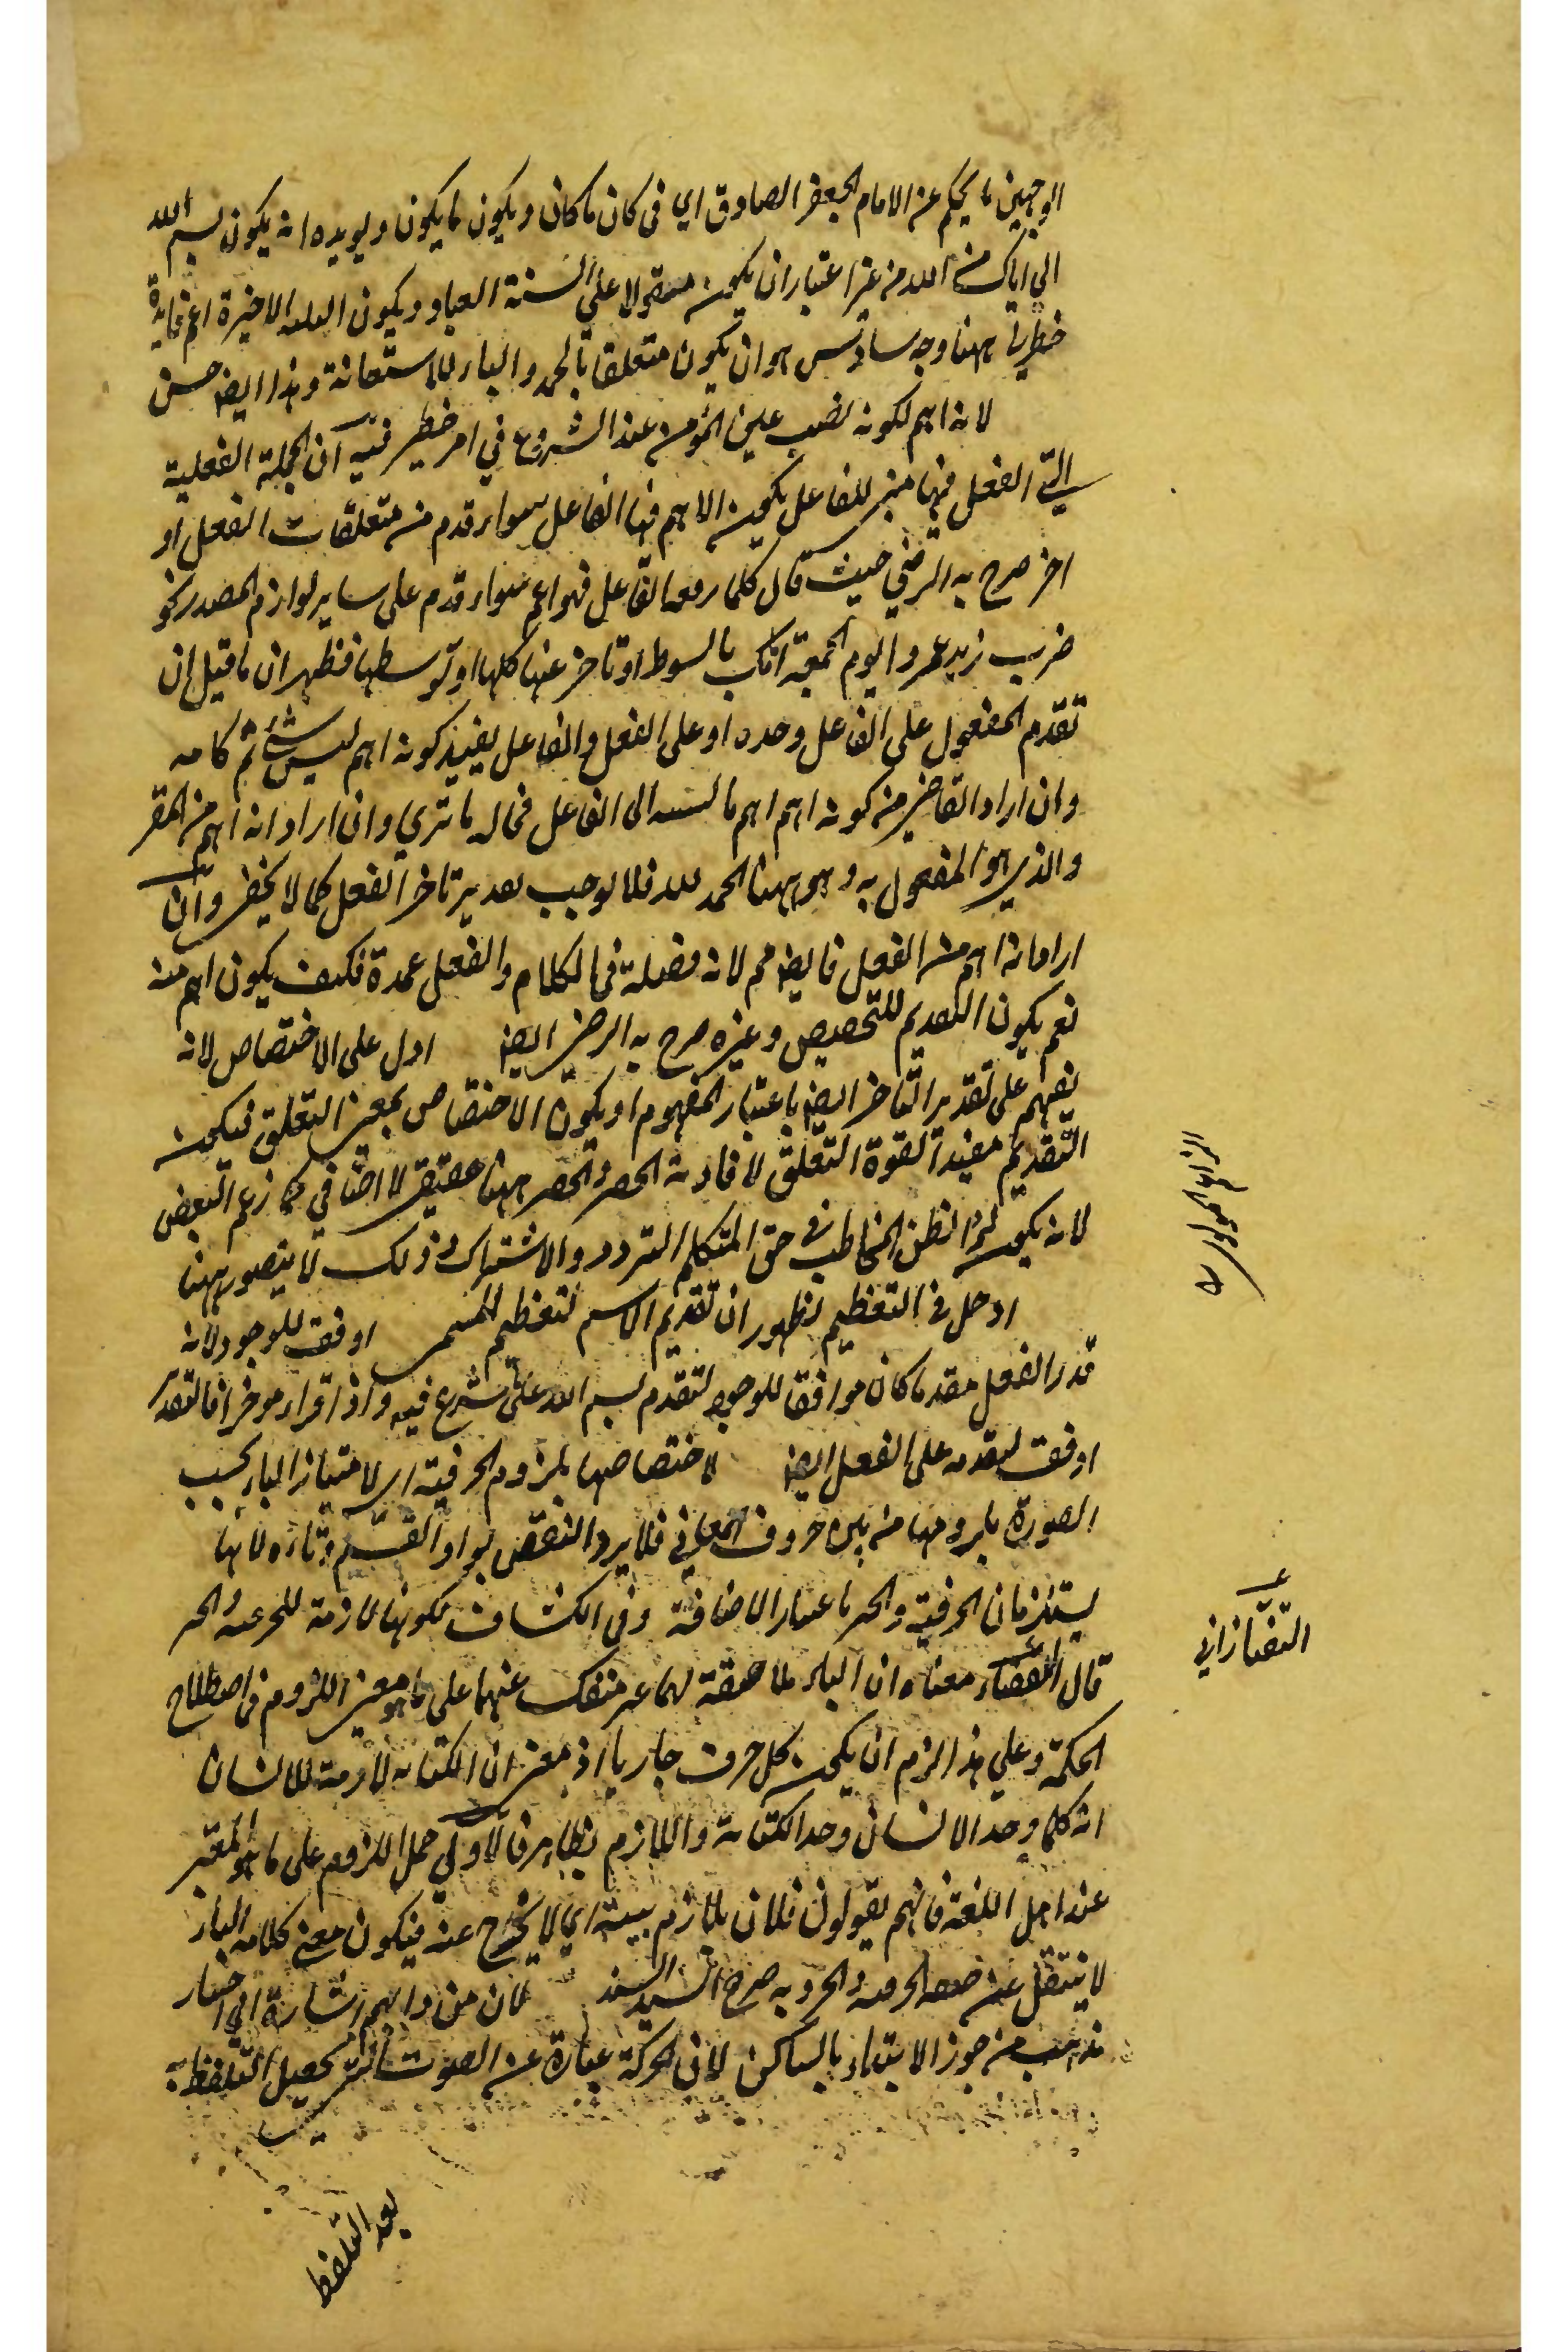 الوجهين ما يحكم عن الامام الجعفر الصادق اي في كان ما كان ويكون ما يكون ويويده انه يكون بسم الله
الي اياك من الله من غير اعتبار ان يكون مقولا علي السنة العباد ويكون العلة الاخيرة اعم فايدة
خطر ببالي ههنا وجه سادس هو ان يكون متعلقا بالحمد والباء للاستعانة وهذا ايضا حسن
لانه اهم لكونه نصب عين المؤمن عند الشروع في امر خطير فيه ان الجملة الفعلية
التي الفعل فيها مبني للفاعل يكون الاهم فيها الفاعل سواء قدم من متعلقات الفعل او
اخر صرح به الرضي حيث قال كلما رفعه الفاعل فهو اعم سواء قدم علي ساير لوازم المصدر نحو
ضرب زيد عمروا يوم الجمعة امامك بالسوط او تاخر عنها كلها او توسطها فظهر ان ما قيل ان
تقدم المفعول علي الفاعل وحده او علي الفعل والفاعل يفيد كونه اهم ليس بشئ ثم كلامه
وان اراد القاضي من كونه اهم اهم بالنسبة الي الفاعل فحاله ما تري وان اراد انه اهم من المقر
والذي هو المفعول به وهو ههنا الحمد لله فلا يوجب تقدير تاخر الفعل كما لا يخفي وان
اراد انه اهم من الفعل فايضا مم لانه فضلة في الكلام والفعل عمدة فكيف يكون اهم منه
نعم يكون التقديم للتخصيص وغيره صرح به الرضي ايضا ادل علي الاختصاص لانه
يفهم علي تقدير التاخر ايضا باعتبار المفهوم او يكون الاختصاص بمعني التعلق فيكون
التقديم مفيدا لقوة التعلق لافادته الحصر والحصر ههنا حقيقي لا اضافي كما زعم البعض
لانه يكون لرد ظن المخاطب في حق المتكلم التردد والاشتراك وذلك لا يتصور ههنا
ادخل في التعظيم لظهور ان تقديم الاسم لتعظيم المسمي اوفق للوجود لانه
قدر الفعل مقدما كان موافقا للوجود لتقدم بسم الله علي ما شرع فيه واذا قراء موخرا فالتقدير
اوفق لتقدمه علي الفعل ايضا لاختصاصها بلزوم الحرفية اي لامتياز الباء بحسب
الصورة بلزومها من بين حروف المعاني فلا يرد النقض بواو القسم وتاءه لانها
يستلزمان الحرفية والجر باعتبار الاضافة وفي الكشاف لكونها لازمة للحرفية والجر
قال معناه ان الباء ملاصقة لهما غير منفك عنهما علي ما هو معني اللزوم في اصطلاح
الحكمة وعلي هذا لزم ان يكون كل حرف جار يا اذ معني ان الكتابة لازمة للانسان
انه كلما وجد الانسان وجد الكتابة واللازم بظاهر فالاولي حمل اللزوم علي ما هو المعتبر
عند اهل اللغة فانهم يقولون فلان يلازم بيته اي لا يخرج عنه فيكون معني كلامه الباء
لا ينتقل عن صفة الحرفية والجر وبه صرح السيد السند لان من دابهم اشارة الي اختيار
مذهب من جوز الابتداء بالساكن لان الحركة عبارة عن الصوت التي يحصل التلفظ به
بعد التلفظ
التفتازاني